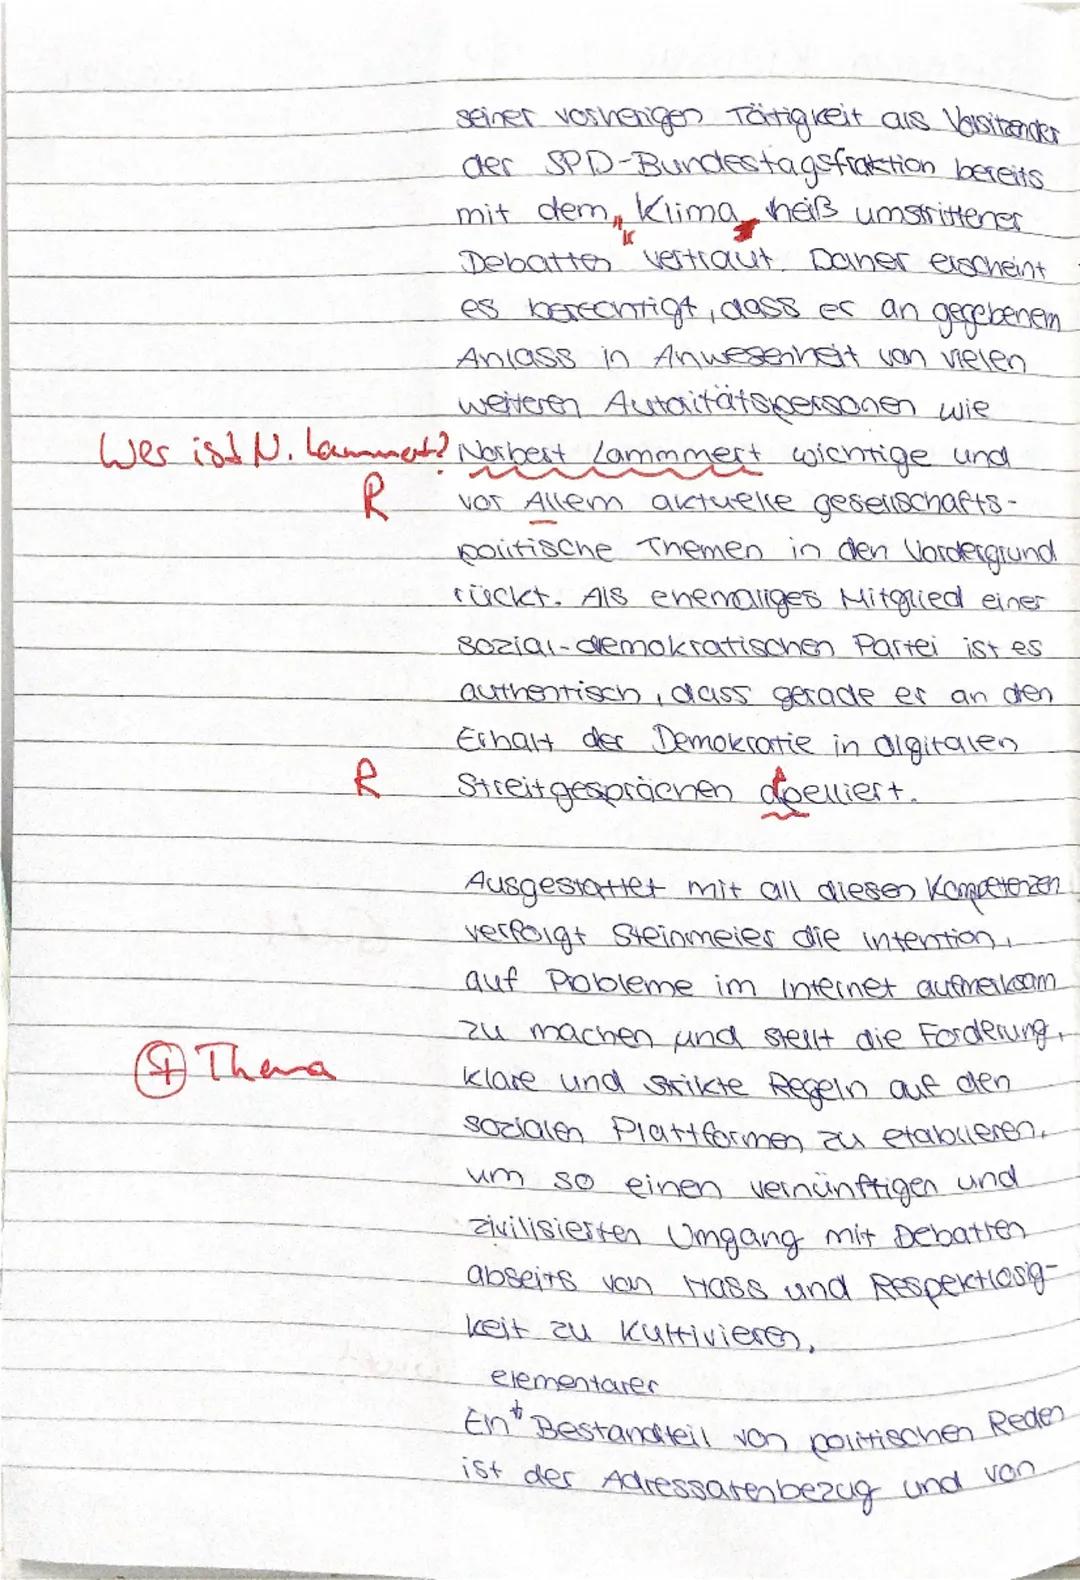 seiner vorherigen Tätigkeit als Vorsitzender
der SPD-Bundestagsfraktion bereits
mit dem „Klima heiß umstrittener
Debatten" vertraut. Daher erscheint
es berechtigt, dass er an gegebenem
Anlass in Anwesenheit von vielen
weiteren Autoritätspersonen wie
Wer ist N. Lammert? Norbert Lammmert wichtige und
R vor Allem aktuelle gesellschafts-
politische Themen in den Vordergrund
rückt. Als ehemaliges Mitglied einer
sozial-demokratischen Partei ist es
authentisch, dass gerade er an den
Erhalt der Demokratie in digitalen
R Streitgesprächen apelliert.
Ausgestattet mit all diesen Kompetenzen
verfolgt Steinmeier die Intention,
auf Probleme im Internet aufmerksam
zu machen und stellt die Forderung,
Thema klare und strikte Regeln auf den
sozialen Plattformen zu etablieren,
um so einen vernünftigen und
zivilisierten Umgang mit Debatten
abseits von Hass und Respektlosig-
keit zu kultivieren.
elementarer
Ein Bestandteil von politischen Reden
ist der Adressatenbezug und von